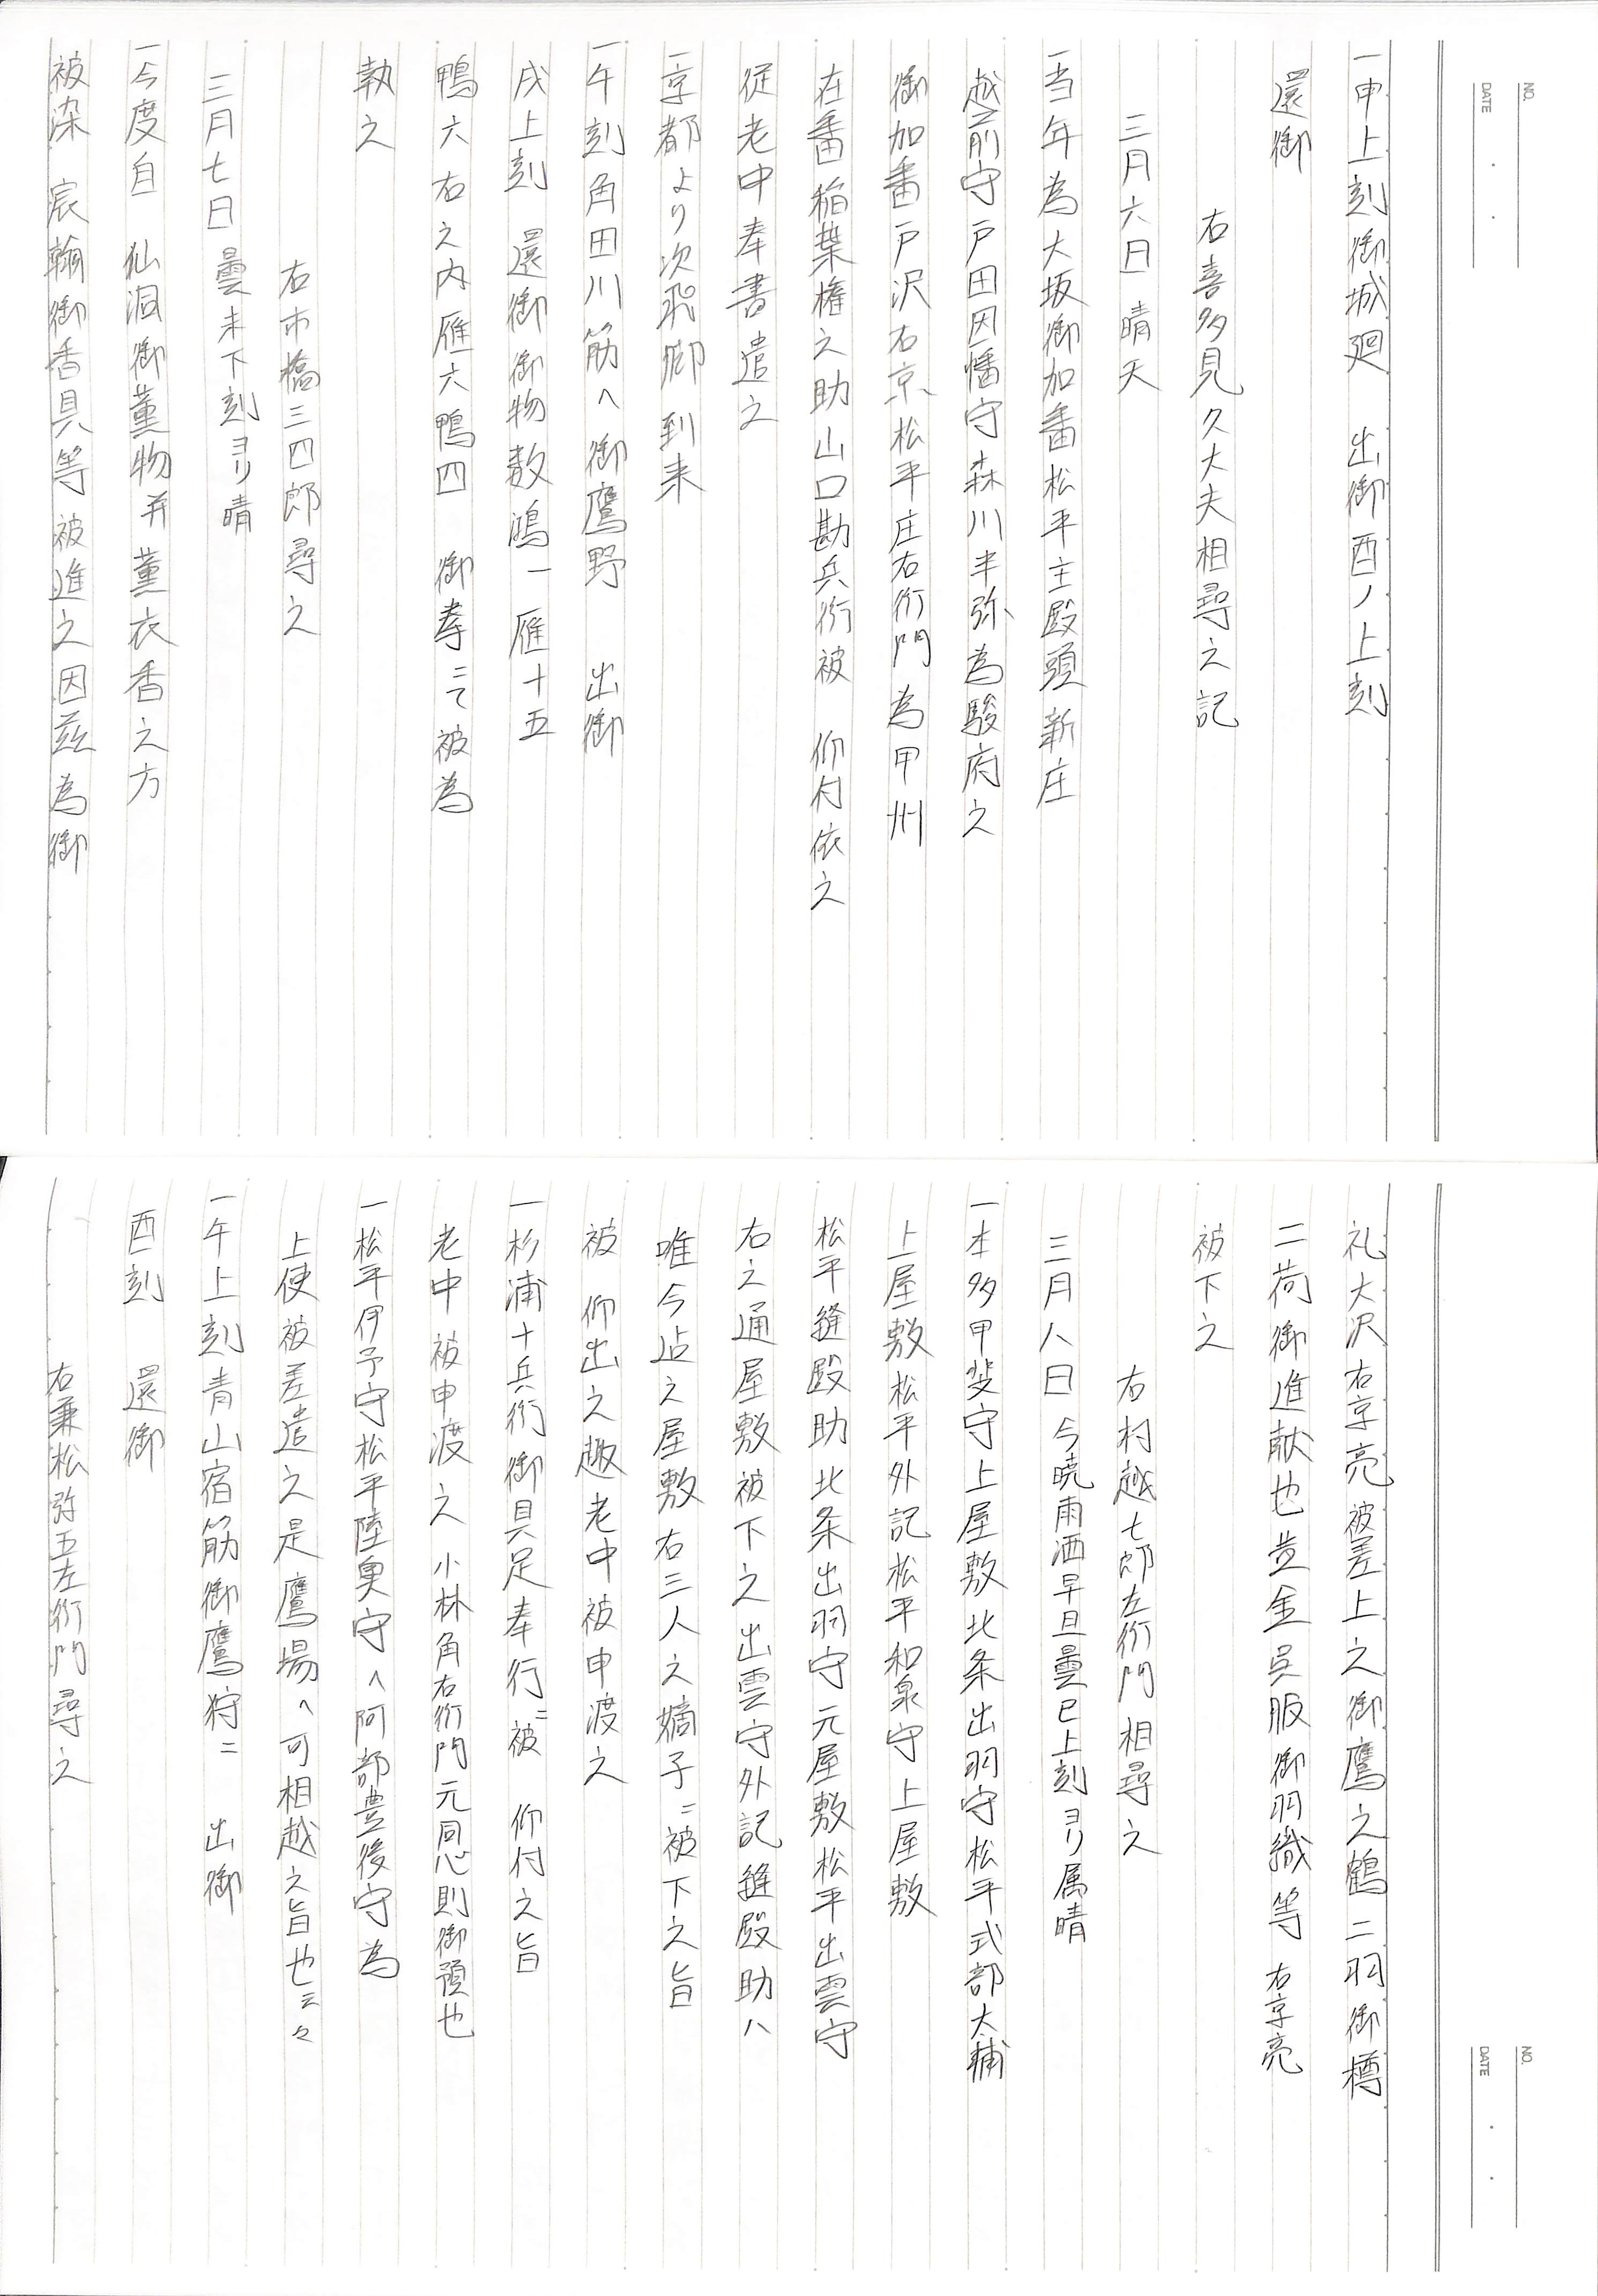 NO.
DATE
一申上刻御城廻　出御酉ノ上刻
還御
右喜多見久大夫相尋之記
三月六日 晴天
一当年為大坂御加番松平主殿頭新庄
越前守戸田因幡守森川半弥為駿府之
御加番戸沢右京松平庄右衛門為甲州
在番稲葉権之助山口勘兵衛被　仰付依之
従老中奉書遣之
一京都より次飛脚到来
一午刻角田川筋へ御鷹野　出御
戌上刻　還御御物数鴻一　雁十五
鴨六右之内雁六鴨四　御拳ニて被為
執之
右市橋三四郎尋之
三月七日 曇未下刻ヨリ晴
一今度自　仙洞御薫物并薫衣香之方
被染　宸翰御香具等被進之因茲為御
NO.
DATE
礼大沢右京亮被差上之御鷹之鶴二羽御樽
二荷御進献也並金呉服御羽織等　右京亮
被下之
右村越七郎左衛門相尋之
三月八日　今暁雨洒早旦曇巳上刻ヨリ属晴
一本多甲斐守上屋敷北条出羽守松平式部大輔
上屋敷松平外記松平和泉守上屋敷
松平縫殿助北条出羽守元屋敷松平出雲守
右之通屋敷被下之出雲守外記縫殿助ハ
唯今迠之屋敷右三人之嫡子ニ被下之旨
被　仰出之趣老中被申渡之
一杉浦十兵衛御具足奉行ニ被　仰付之旨
老中被申渡之　小林角右衛門元同心則御預也
一松平伊予守松平陸奥守へ阿部豊後守為
上使被差遣之是鷹場へ可相越之旨也云々
一午上刻青山宿筋御鷹狩ニ　出御
酉刻　還御
右兼松弥五左衛門尋之